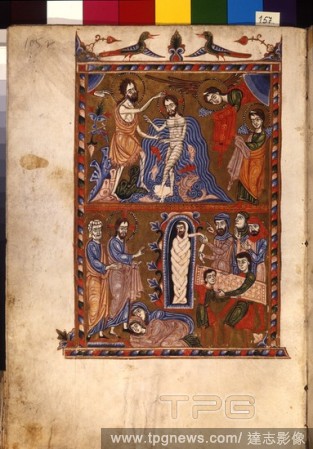 157
TPG
www.tpgnews.com/ 達志影像